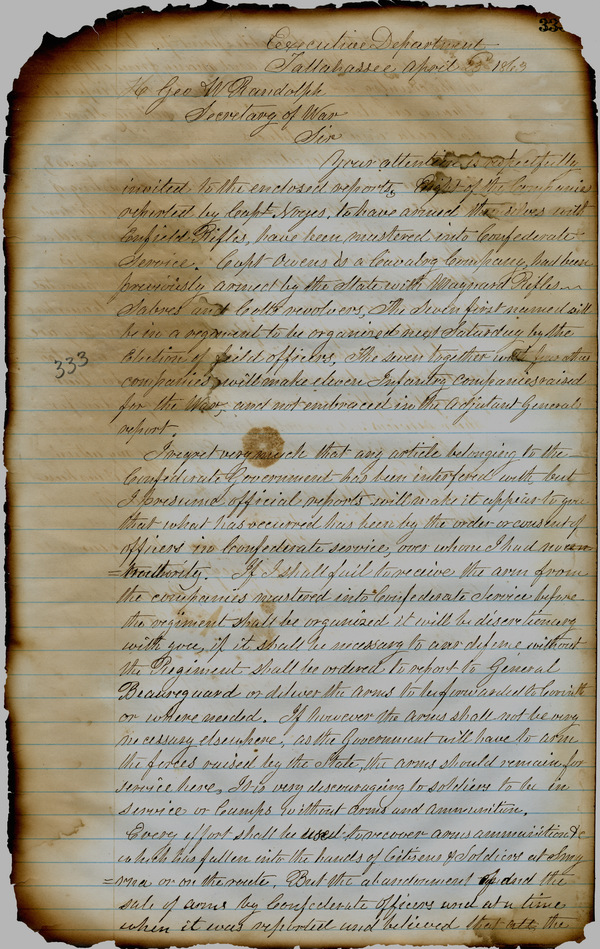 33
Executive Department
Tallahassee April 23d 1863
H Geo W Randolph
Secretary of War
Sir
Your attention is respectfully
invited to the enclosed reports, Eight of the Companies
reported by Capt Noyes, to have armed themselves with
Enfield Rifles, have been mustered into Confederate
Service. Capt Owens is a Cavalry Company, had been
previously armed by the State with Maynard Rifles
Sabres and Colts revolvers, The seven first named will
be in a regiment to be organized next Saturday by the
Election of feild officers, The seven together with four other
333
companies, will make eleven Infantry companies raised
for the War, and not embraced in the Adjutant Generals
report
I regret very much that any article belonging to the
Confederate Government has been interfered with but
I presume official reports will make it appear to you
that what has occurred has been by the order or consent of
officers in Confederate service, over whom I had no
authority. If I shall fail to receive the arms from
the companies mustered into Confederate Service before
the regiment shall be organized it will be discretionary
with you, if it shall be necessary to our defence without
the Regiment shall be ordered to report to General
Beaureguard or deliver the arms to be forwarded to Corinth
or where needed. If however the arms shall not be very
necessary elsewhere, as the Government will have to arm
the forces raised by the State, the arms should remain for
service here, It is very discouraging to soldiers to be in
service or Camps without arms and ammunition.
Every effort shall be used to recover arms ammunition &c
which has fallen into the hands of Citizens & Soldiers at Smy
=rna or on the route, But the abandonment and the
sale of arms by Confederate officers and at a time
when it was reported and believed that all the